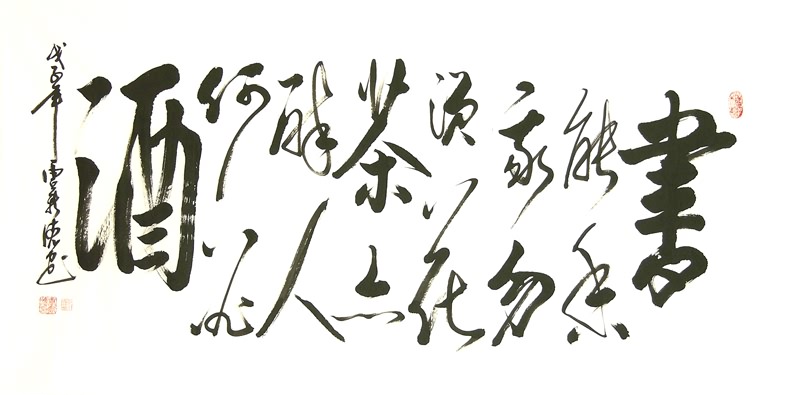 書
能香
我勿
須花
茶亦
醉人
何必
酒